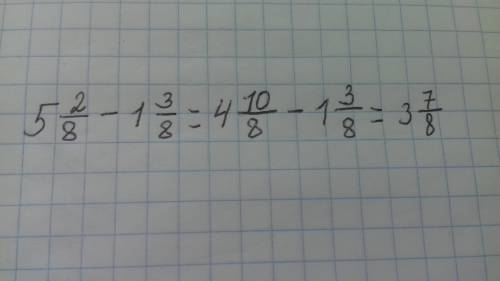 5 2/8 - 1 3/8 = 4 10/8 - 1 3/8 = 3 7/8